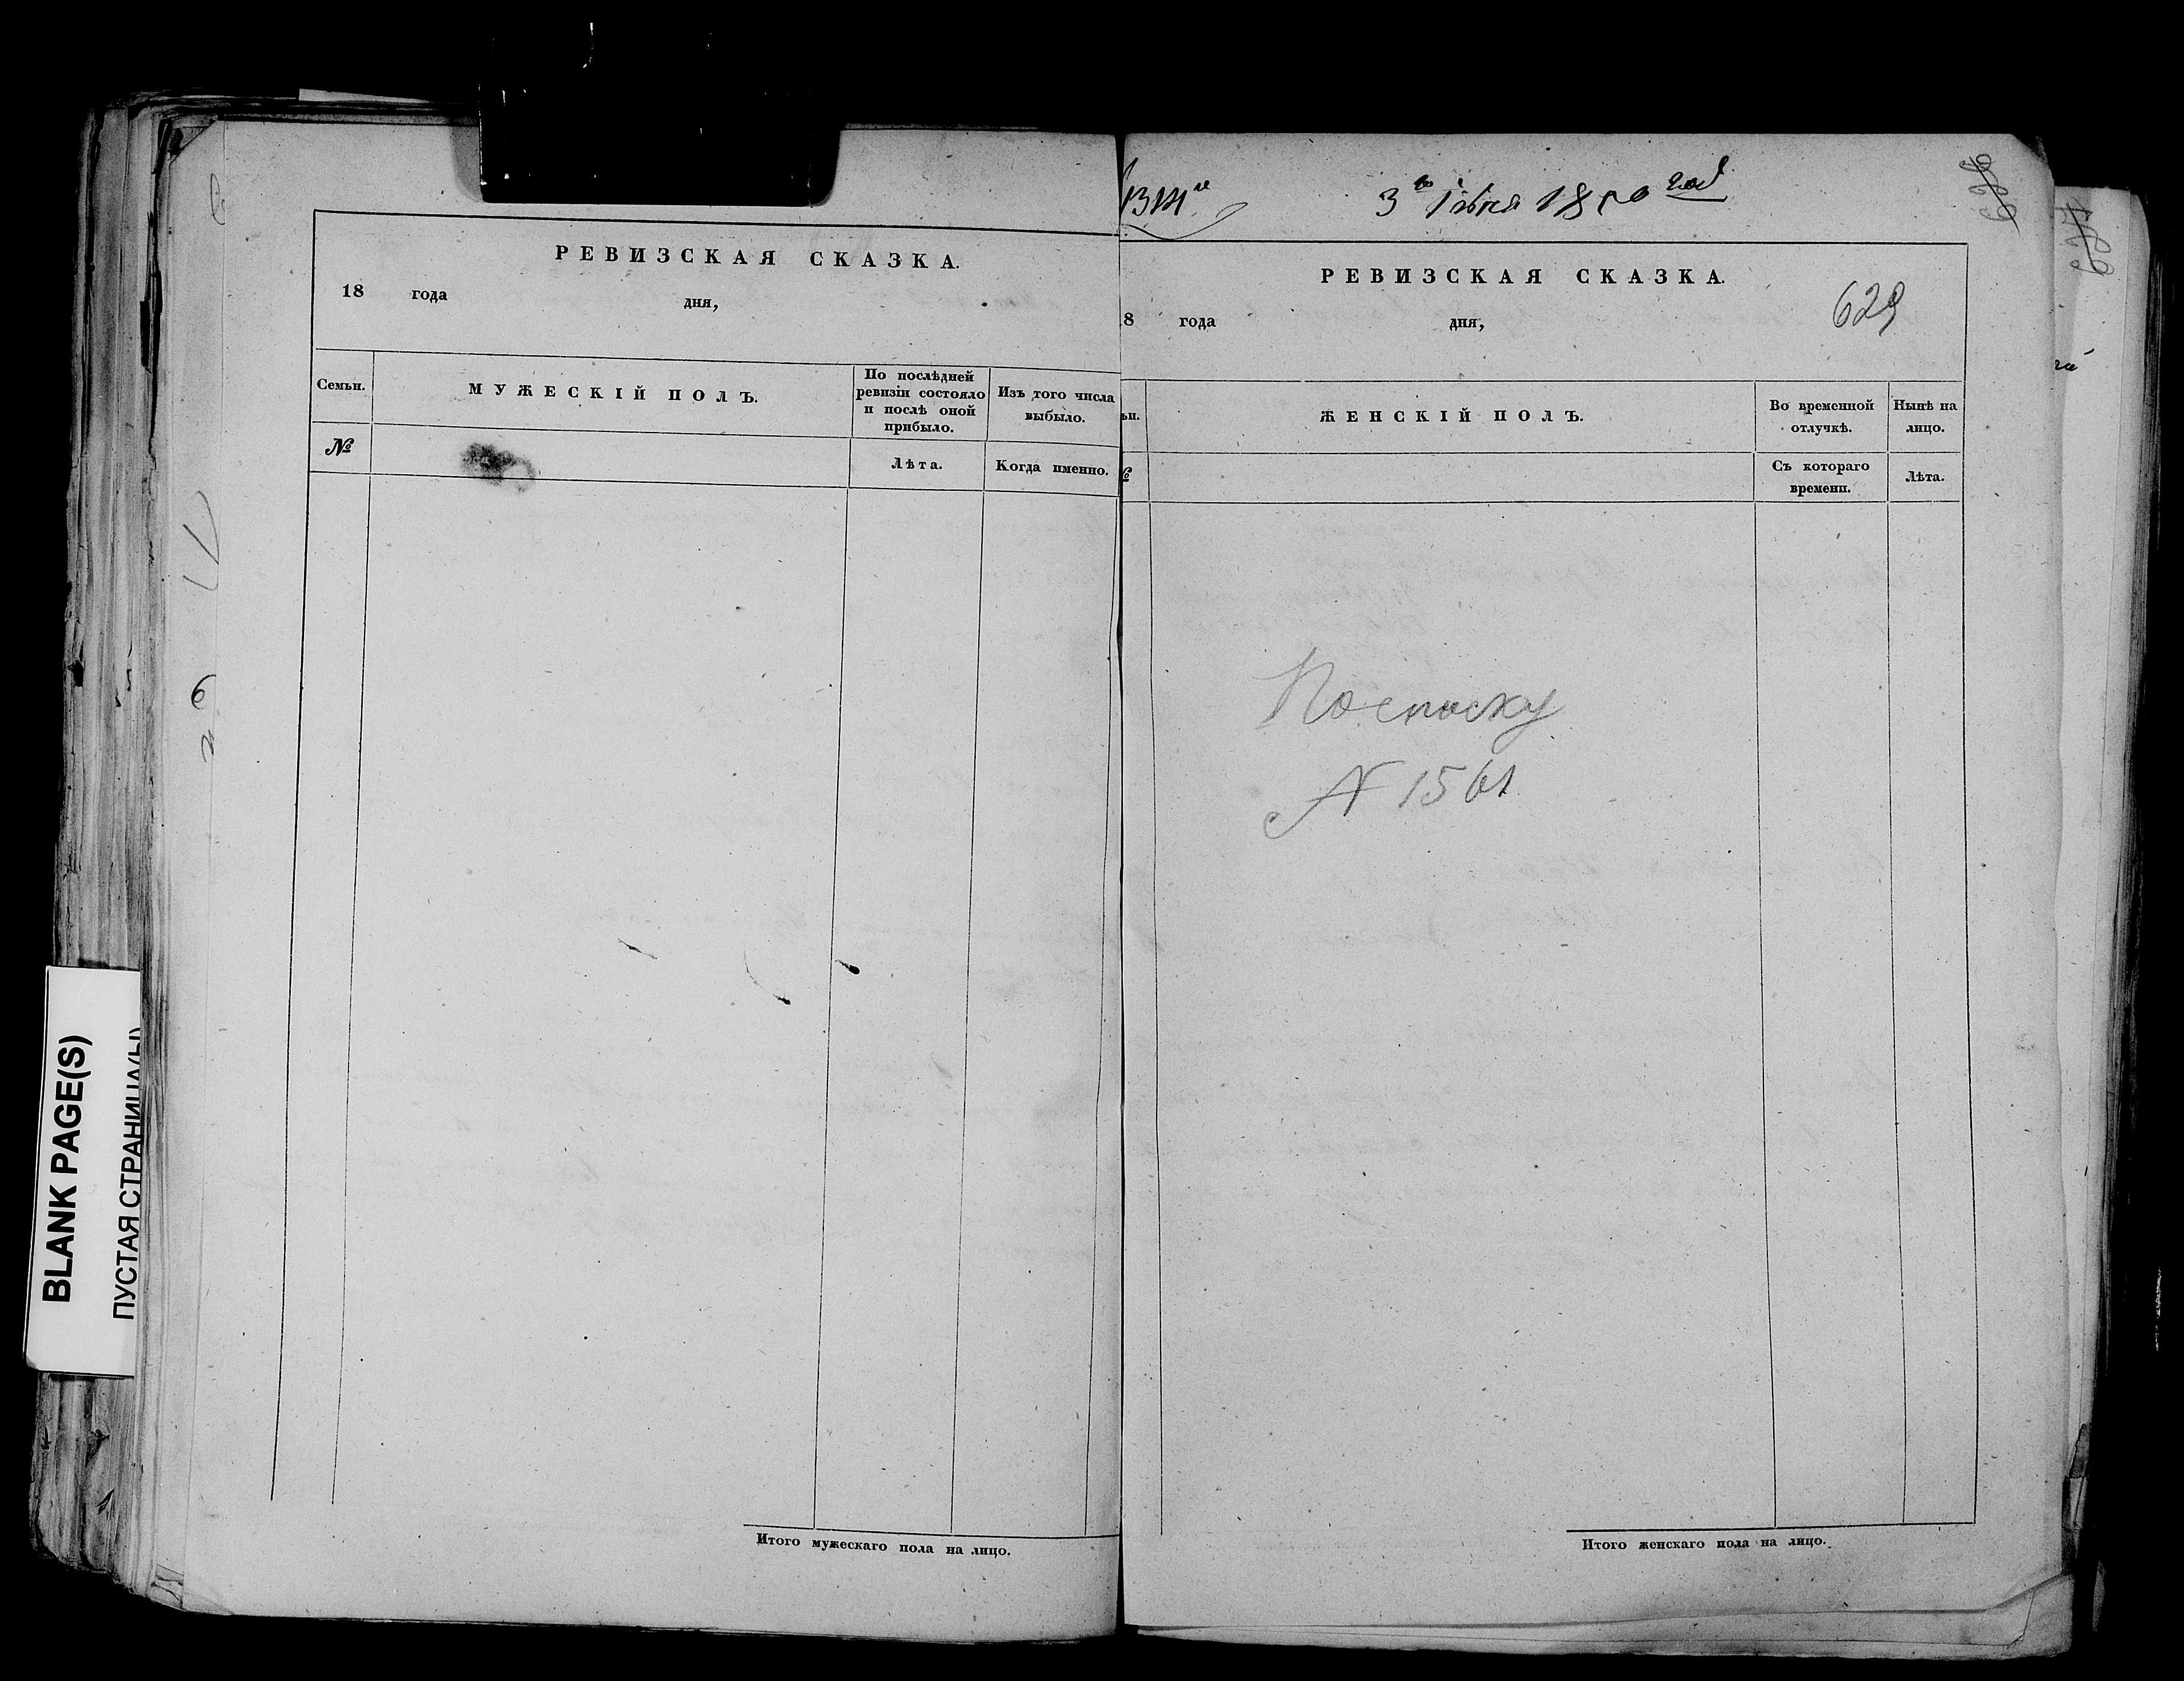 РЕВИЗСКАЯ СКАЗКА.
18 года дня,
Семьи.
МУЖЕСКІЙ ПОЛЪ.
По послѣдней
ревизіи состояло
и послѣ оной
прибыло.
Изъ того числа
выбыло.
№
Лѣта.
Когда именно.
Итого мужескаго пола на лицо.
3го Іюня 1850 год
626
РЕВИЗСКАЯ СКАЗКА.
8 года дня,
629
ьи.
ЖЕНСКІЙ ПОЛЪ.
Во временной
отлучкѣ.
Нынѣ на
лицо.
Съ котораго
времени.
Лѣта.
По списку
№ 1561
Итого женскаго пола на лицо.
BLANK PAGE(S)
ПУСТАЯ СТРАНИЦА(Ы)